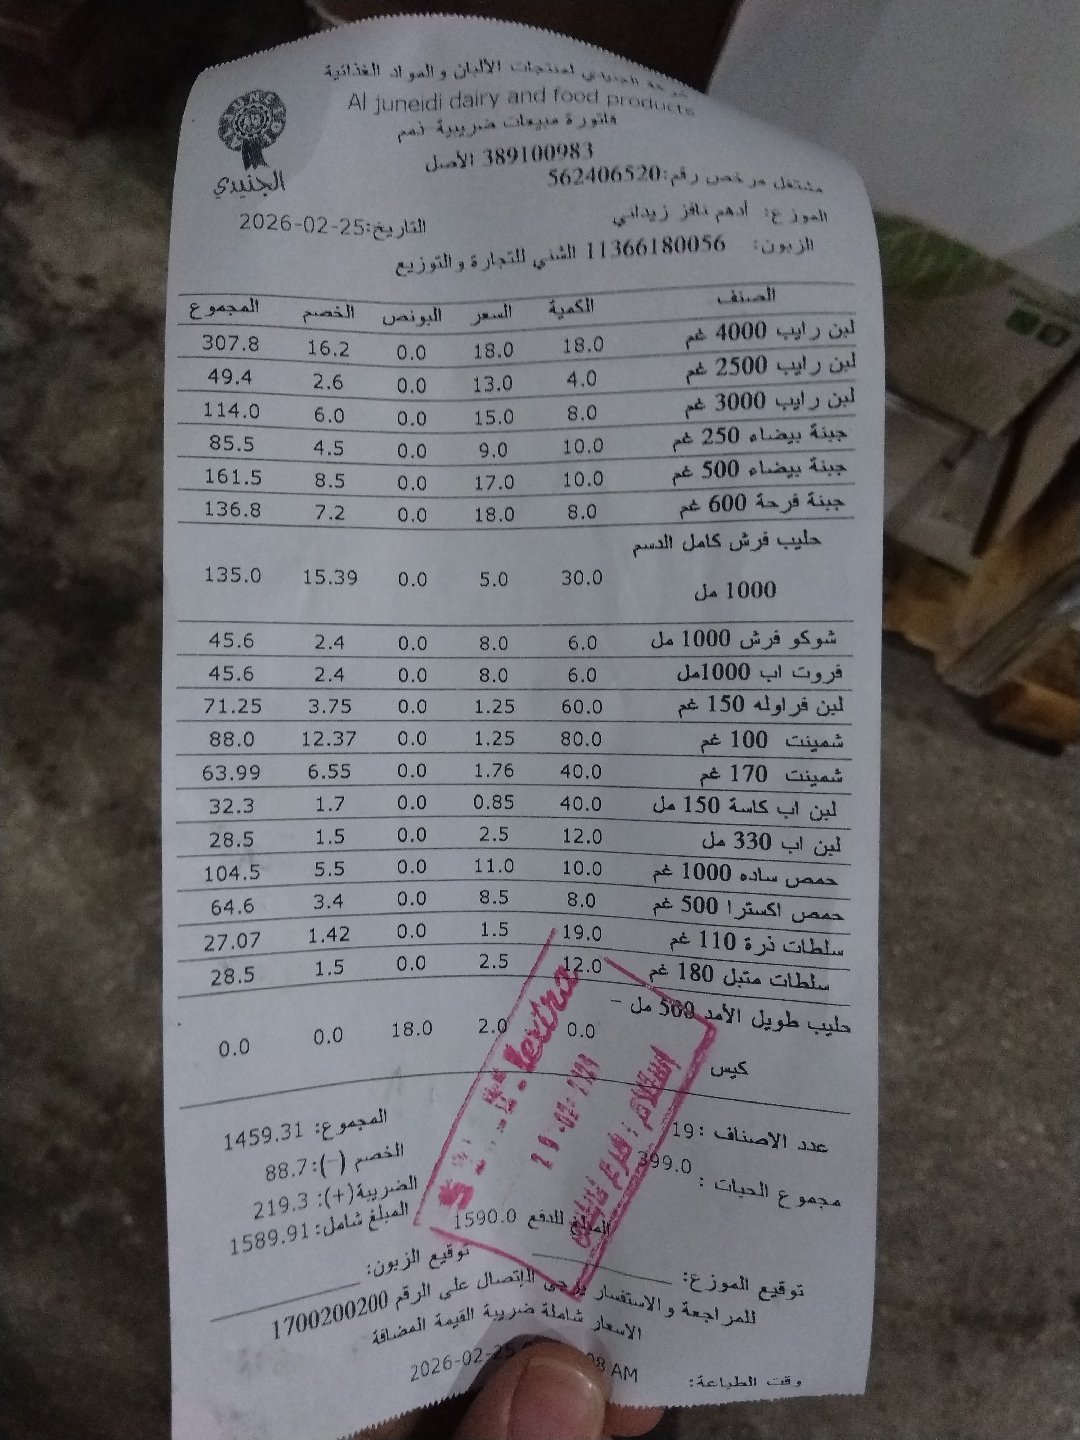 شركة الجنيدي لمنتجات الألبان و المواد الغذائية
Al juneidi dairy and food products
فاتورة مبيعات ضريبية ذمم
389100983 الأصل
الجنيدي
مشتغل مرخص رقم:562406520
الموزع: أدهم نافز زيداني
التاريخ:2026-02-25
الزبون: 11366180056 الشني للتجارة والتوزيع
الصنف الكمية السعر البونص الخصم المجموع
لبن رايب 4000 غم 18.0 18.0 0.0 16.2 307.8
لبن رايب 2500 غم 4.0 13.0 0.0 2.6 49.4
لبن رايب 3000 غم 8.0 15.0 0.0 6.0 114.0
جبنة بيضاء 250 غم 10.0 9.0 0.0 4.5 85.5
جبنة بيضاء 500 غم 10.0 17.0 0.0 8.5 161.5
جبنة فرحة 600 غم 8.0 18.0 0.0 7.2 136.8
حليب فرش كامل الدسم
1000 مل 30.0 5.0 0.0 15.39 135.0
شوكو فرش 1000 مل 6.0 8.0 0.0 2.4 45.6
فروت اب 1000مل 6.0 8.0 0.0 2.4 45.6
لبن فراوله 150 غم 60.0 1.25 0.0 3.75 71.25
شمينت 100 غم 80.0 1.25 0.0 12.37 88.0
شمينت 170 غم 40.0 1.76 0.0 6.55 63.99
لبن اب كاسة 150 مل 40.0 0.85 0.0 1.7 32.3
لبن اب 330 مل 12.0 2.5 0.0 1.5 28.5
حمص ساده 1000 غم 10.0 11.0 0.0 5.5 104.5
حمص اكسترا 500 غم 8.0 8.5 0.0 3.4 64.6
سلطات ذرة 110 غم 19.0 1.5 0.0 1.42 27.07
سلطات متبل 180 غم 12.0 2.5 0.0 1.5 28.5
حليب طويل الأمد 500 مل –
كيس 0.0 2.0 18.0 0.0 0.0
عدد الاصناف :19
المجموع: 1459.31
مجموع الحبات : 399.0
الخصم (–):88.7
الضريبة(+): 219.3
المبلغ شامل: 1589.91
المبلغ للدفع 1590.0
توقيع الموزع:
توقيع الزبون:
للمراجعة و الاستفسار يرجى الإتصال على الرقم 1700200200
الاسعار شاملة ضريبة القيمة المضافة
وقت الطباعة: 2026-02-25 AM